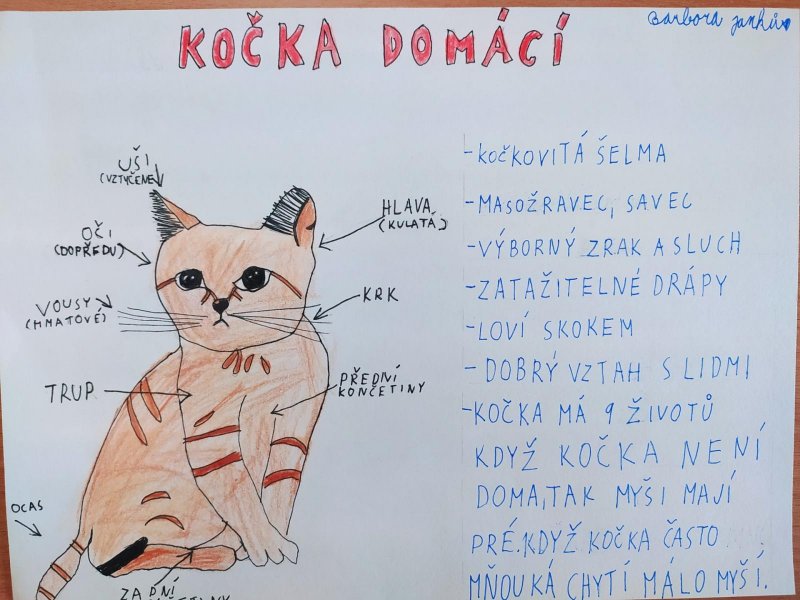 KOČKA DOMÁCÍ
Barbora
UŠI
(VZTYČENÉ)
OČI
(DOPŘEDU)
VOUSY
(HMATOVÉ)
TRUP
OCAS
ZADNÍ
HLAVA
(KULATÁ)
KRK
PŘEDNÍ
KONČETINY
-KOČKOVITÁ ŠELMA
-MASOŽRAVEC, SAVEC
-VÝBORNÝ ZRAK A SLUCH
-ZATAŽITELNÉ DRÁPY
-LOVÍ SKOKEM
-DOBRÝ VZTAH S LIDMI
-KOČKA MÁ 9 ŽIVOTŮ
KDYŽ KOČKA NENÍ
DOMA, TAK MYŠI MAJÍ
PRÉ. KDYŽ KOČKA ČASTO
MŇOUKÁ CHYTÍ MÁLO MYŠÍ.